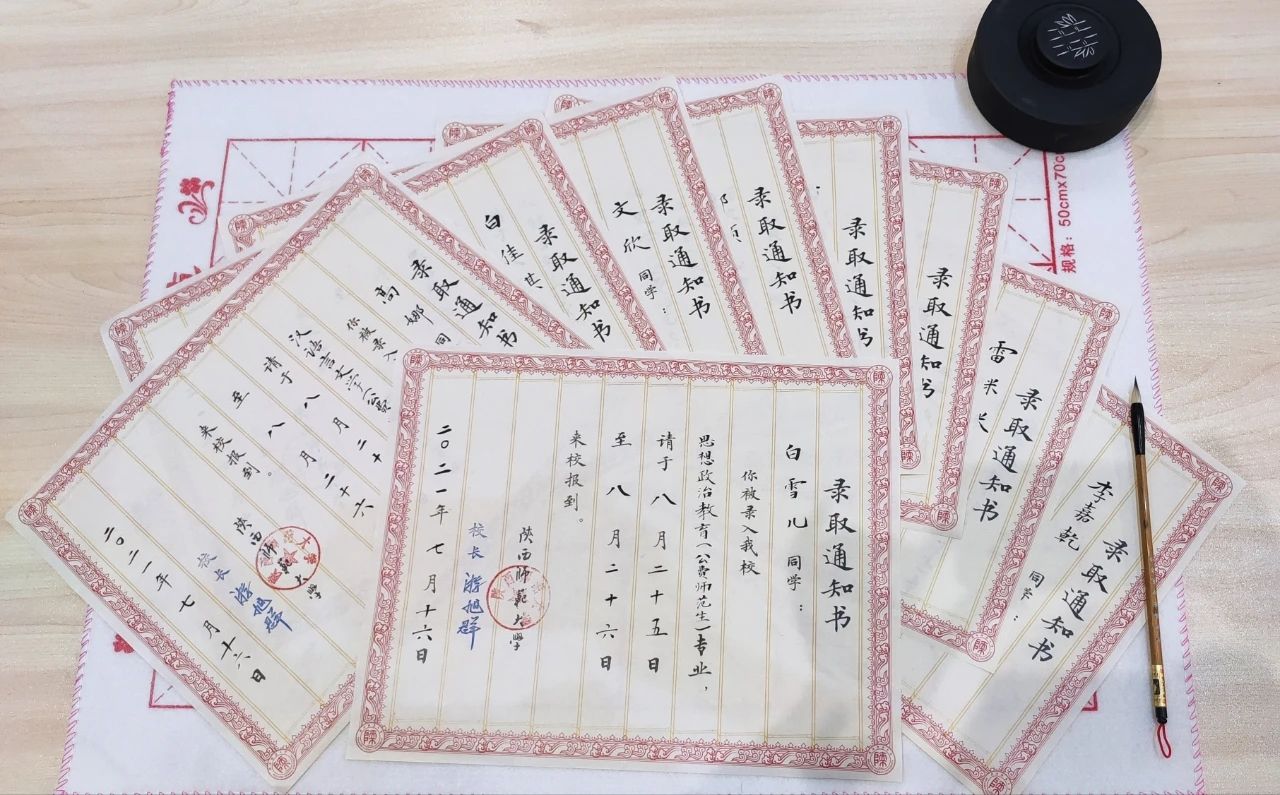 录取通知书
白雪儿 同学：
你被录入我校
思想政治教育(公费师范生)专业，
请于八月二十五日
至八月二十六日
来校报到。
陕西师範大学
校长 游旭群
二〇二一年七月十六日
录取通知书
高娜 同
你被录入
汉语言文学(公费
请于八月二十
至八月二十六
来校报到。
陕西师範大学
校长 游旭群
二〇二一年七月十六日
录取通知书
白佳其
录取通知书
文欣 同学：
录取通知书
录取通知书
录取通知书
录取通知书
雷米
录取通知书
李嘉乾 同学：
规格：50cmx70c